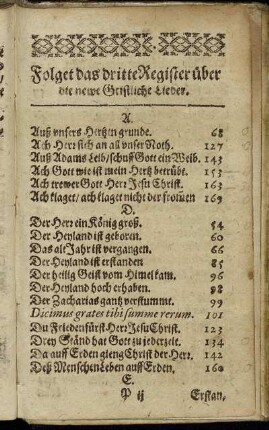 Folget das dritte Register über
die newe Geistliche Lieder.
A.
Auß unsers Hertzen grunde. 68
Ach Herr sich an all unser Noth. 127
Auß Adams Leib/ schuff Gott ein Weib. 143
Ach Gott wie ist mein Hertz betrübt. 153
Ach trewer Gott Herr Jesu Christ. 163
Ach klaget/ ach klaget nicht der frommen 169
D.
Der Herr ein König groß. 54
Der Heyland ist geboren. 60
Das alt Jahr ist vergangen. 66
Der Heyland ist erstanden 85
Der heilig Geist vom Himel kam. 96
Der Heyland hoch erhaben. 98
Der Zacharias gantz verstummt. 99
Dicimus grates tibi summe rerum. 101
Du Friedenfürst Herr Jesu Christ. 123
Drey Ständ hat Gott zu jederzeit. 134
Da auff Erden gieng Christ der Herr. 142
Deß Menschen Leben auff Erden. 160
E.
P ij Erstan,